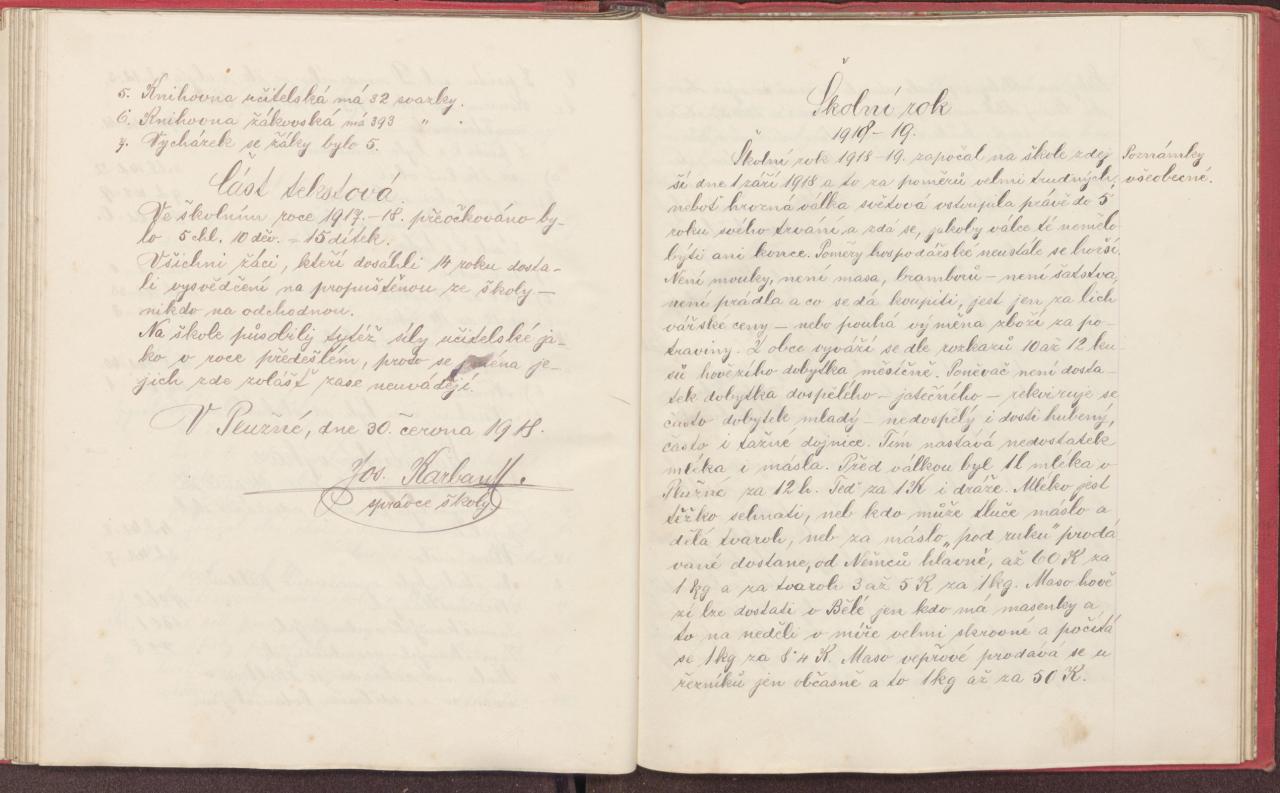 5. Knihovna učitelská má 32 svazky.
6. Knihovna žákovská má 393 "
7. Vycházek se žáky bylo 5.
Část tekstová.
Ve školním roce 1917.-18. přeočkováno by-
lo 5 chl. 10 děv. = 15 dítek.
Všichni žáci, kteří dosáhli 14 roku dosta-
li vysvědčení na propuštěnou ze školy —
nikdo na odchodnou.
Na škole působily tytéž síly učitelské ja-
ko v roce předešlém, proto se jména je-
jich zde zvlášť zase neuvádějí.
V Plužné, dne 30. června 1918.
Jos. Karban
správce školy
Školní rok
1918-19.
Školní rok 1918-19. započal na škole zdej
ší dne 1 září 1918 a to za poměrů velmi trudných,
neboť hrozná válka světová vstoupila právě do 5
roku svého trvání a zdá se, jakoby válce té nemělo
býti ani konce. Poměry hospodářské neustále se horší.
Není mouky, není masa, bramborů — není šatstva,
není prádla a co se dá koupiti, jest jen za lich
vářské ceny — nebo pouhá výměna zboží za po-
traviny. Z obce vyváží se dle rozkazů 10 až 12 ku-
sů hovězího dobytka měsíčně. Poněvač není dosta-
tek dobytka dospělého — jatečného — rekviruje se
často dobytek mladý — nedospělý i dosti hubený,
často i tažné dojnice. Tím nastává nedostatek
mléka i másla. Před válkou byl 1l mléka v
Plužné za 12 h. Teď za 1K i dráže. Mléko jest
těžko sehnati, neb kdo může tluče máslo a
dělá tvaroh, neb za máslo „pod ruku" prodá
vané dostane, od Němců hlavně, až 60 K za
1 kg a za tvaroh 3 až 5 K za 1 kg. Maso hově
zí lze dostati v Bělé jen kdo má masenky a
to na neděli v míře velmi skrovné a počítá
se 1 kg za 8·4 K. Maso vepřové prodává se u
řezníků jen občasně a to 1 kg až za 50 K.
Poznámky
všeobecné.